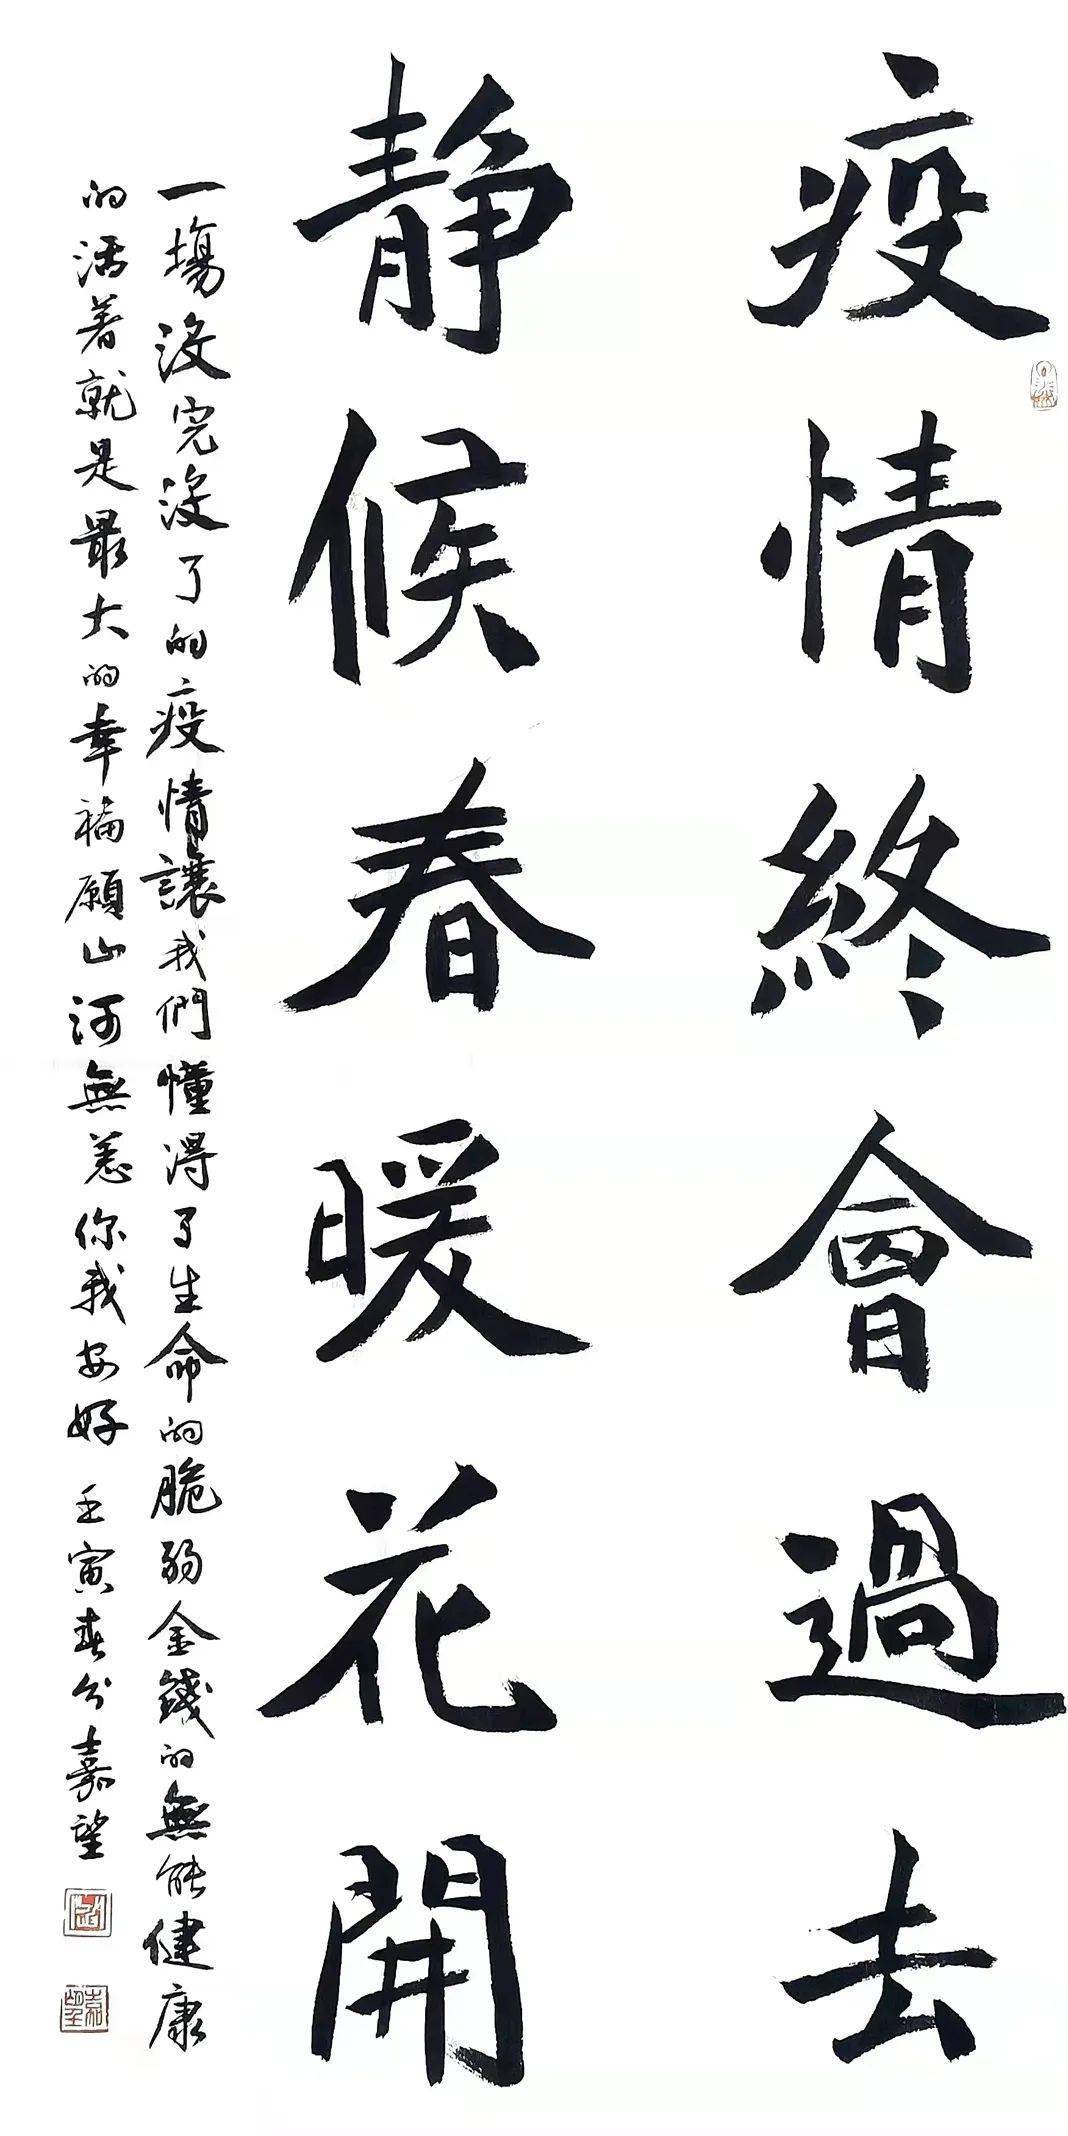 疫情終會過去
静候春暖花開
一場没完没了的疫情讓我們懂得了生命的脆弱金錢的無能健康
的活着就是最大的幸福願山河無恙你我安好 壬寅春分嘉望
嘉望